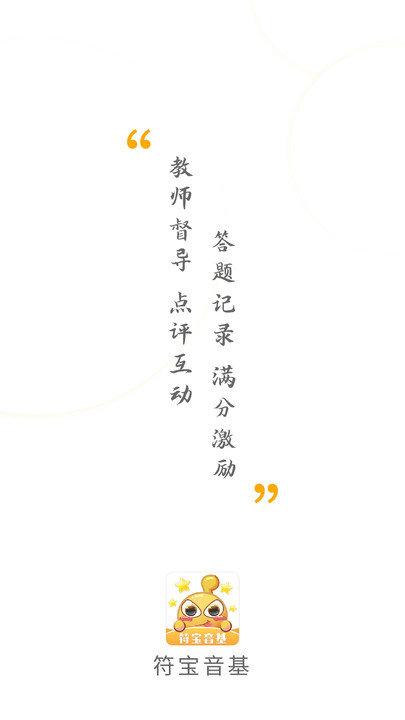 教师督导 点评互动
答题记录 满分激励
符宝音基
符宝音基